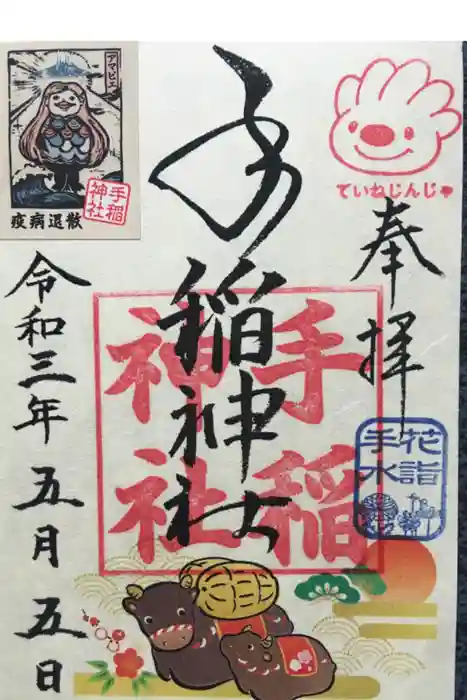 ていねじんじゃ
奉拝
花詣
手水
手稲神社
手稲
神社
アマビヱ
手稲
神社
疫病退散
令和三年五月五日